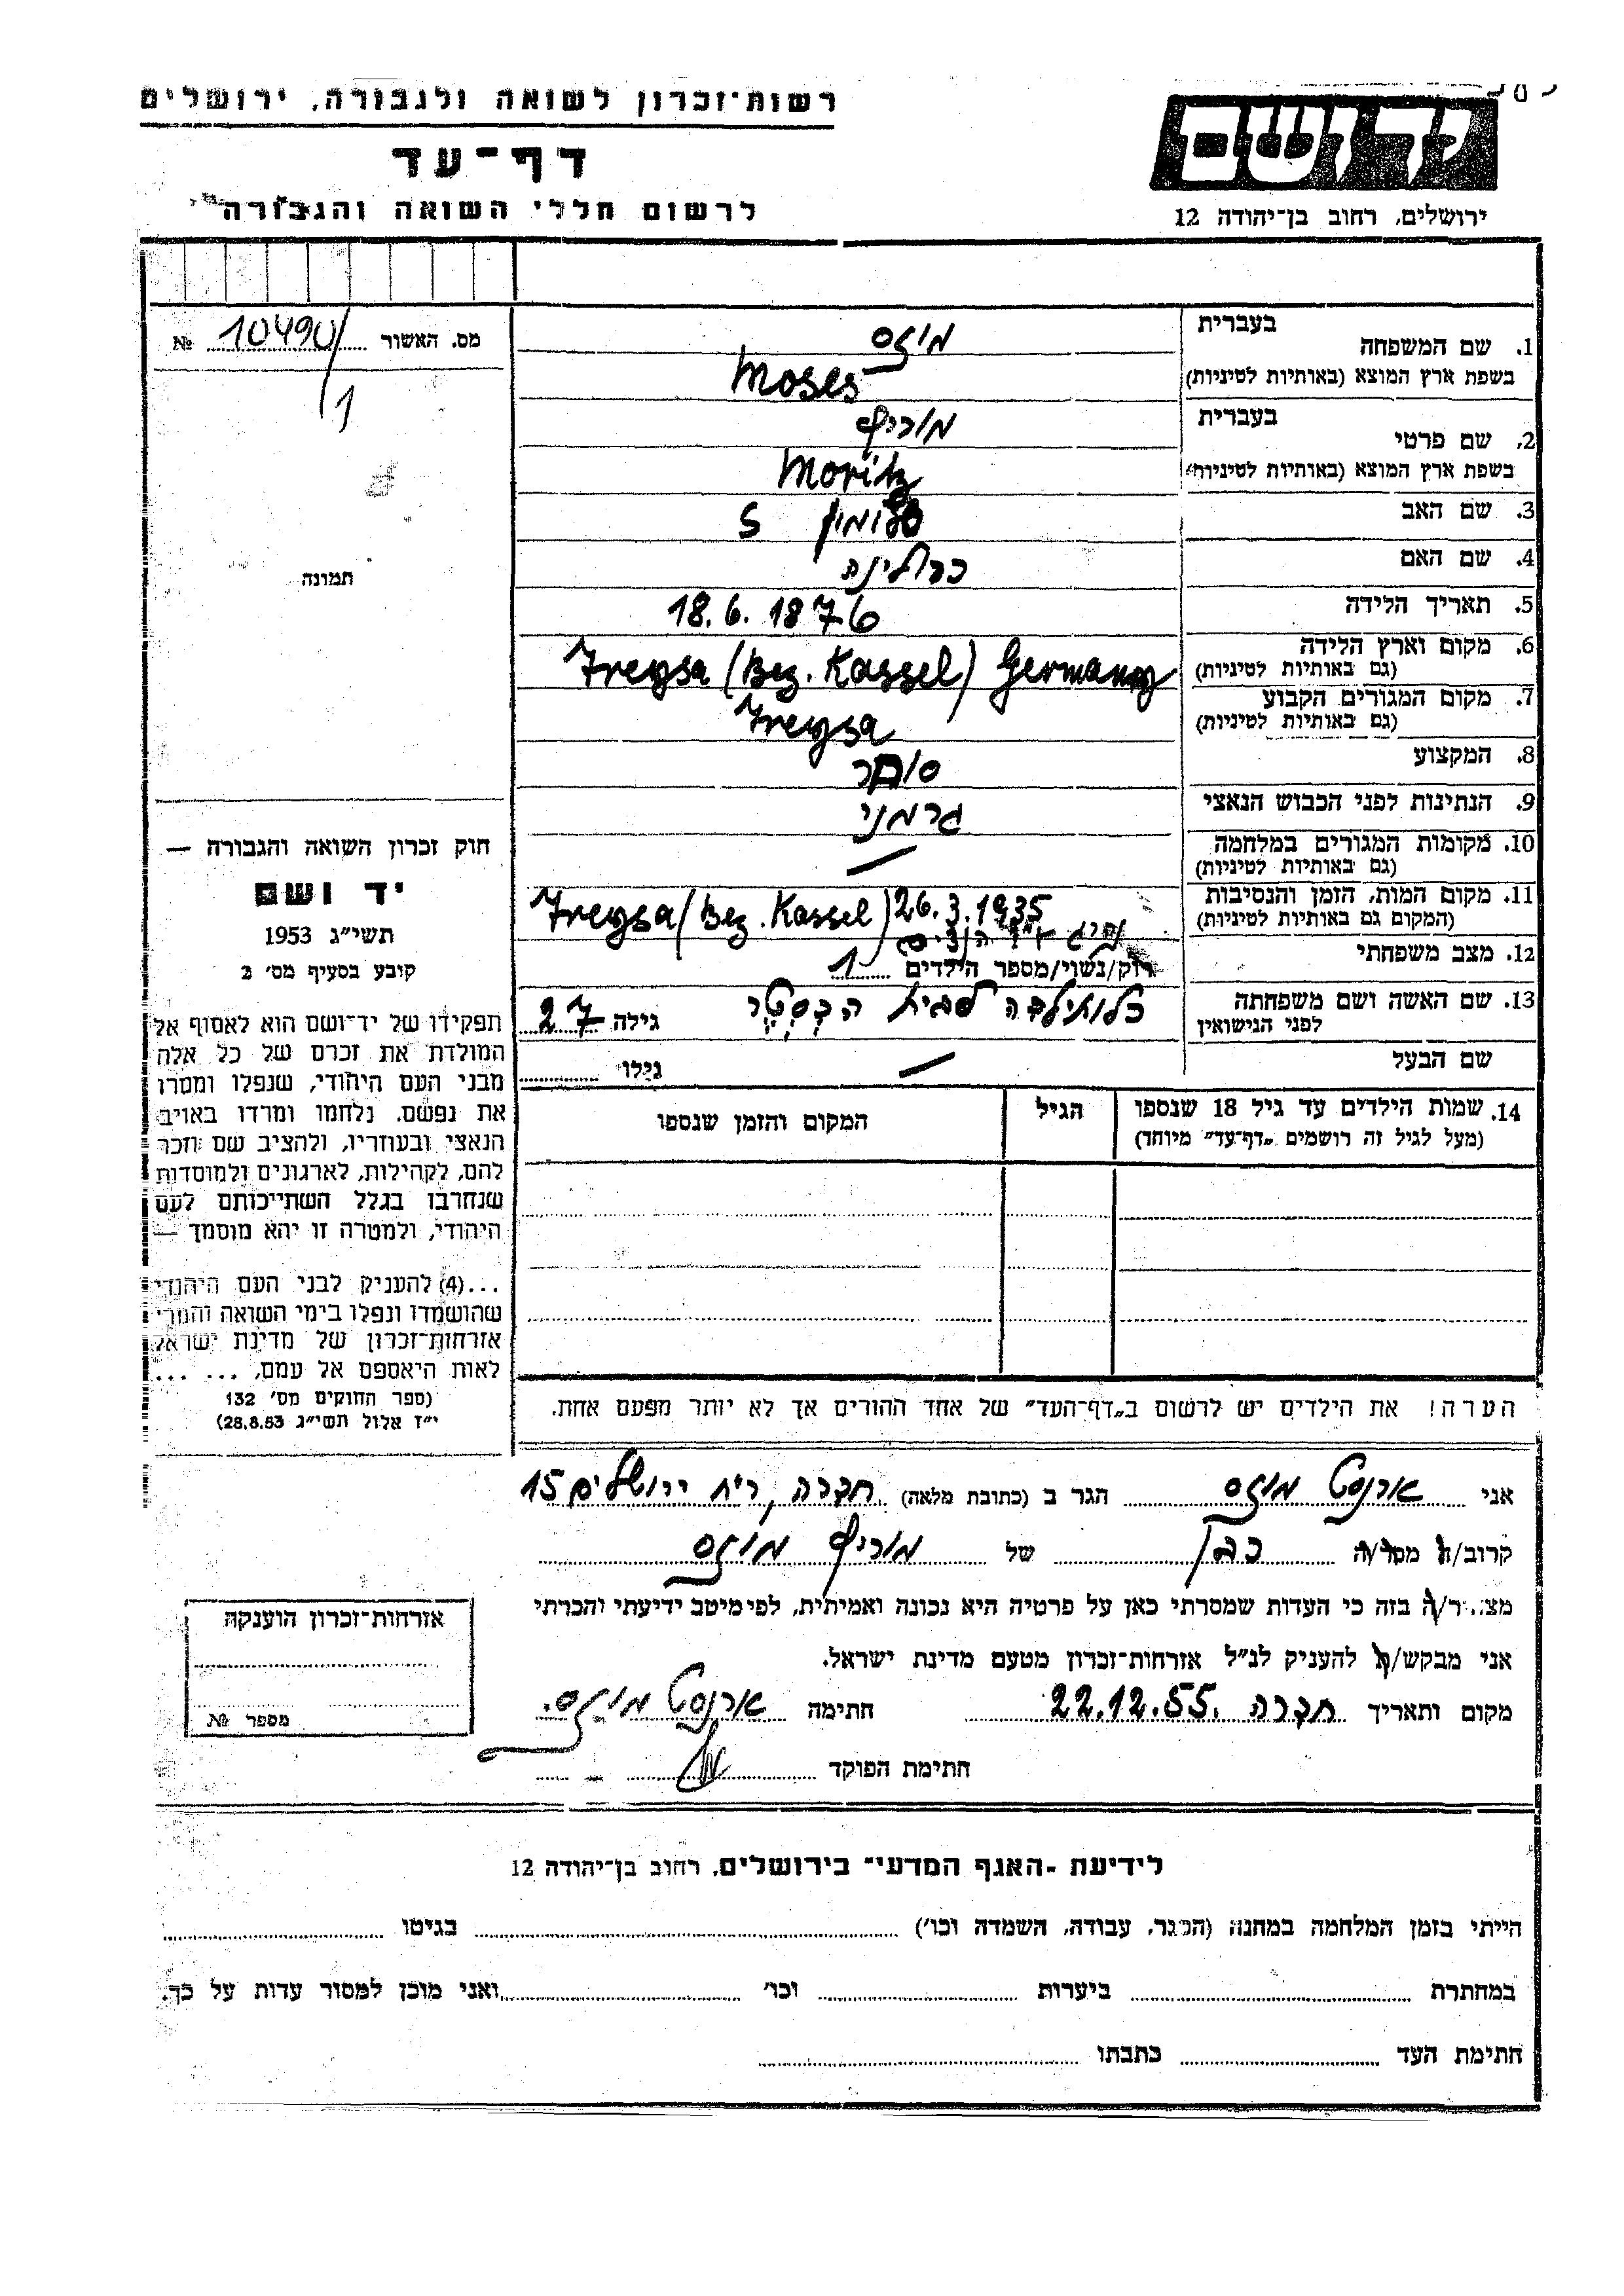 רשות־זכרון לשואה ולגבורה, ירושלים
דף־עד
לרשום חללי השואה והגבורה
ידושם
ירושלים, רחוב בן־יהודה 12
מס. האשור 10490/1 №
תמונה
1. שם המשפחה
בעברית מוזס
בשפת ארץ המוצא (באותיות לטיניות) Moses
2. שם פרטי
בעברית מוריץ
בשפת ארץ המוצא (באותיות לטיניות) Moritz
3. שם האב סלומון S
4. שם האם קרולינה
5. תאריך הלידה 18.6.1876
6. מקום וארץ הלידה Treysa (Bez. Kassel) Germany
(גם באותיות לטיניות)
7. מקום המגורים הקבוע Treysa
(גם באותיות לטיניות)
8. המקצוע סוחר
9. הנתינות לפני הכבוש הנאצי גרמני
10. מקומות המגורים במלחמה —
(גם באותיות לטיניות)
11. מקום המות, הזמן והנסיבות Treysa (Bez. Kassel) 26.3.1935
(המקום גם באותיות לטיניות) הנצים
12. מצב משפחתי רוק/נשוי/מספר הילדים 1
13. שם האשה ושם משפחתה לפני הנישואין קלוטילדה לבית הכסטר גילה 27
שם הבעל — גילו
14. שמות הילדים עד גיל 18 שנספו
(מעל לגיל זה רושמים „דף־עד" מיוחד)
הגיל
המקום והזמן שנספו
חוק זכרון השואה והגבורה —
יד ושם
תשי״ג 1953
קובע בסעיף מס׳ 2
תפקידו של יד־ושם הוא לאסוף אל
המולדת את זכרם של כל אלה
מבני העם היהודי, שנפלו ומסרו
את נפשם, נלחמו ומרדו באויב
הנאצי ובעוזריו, ולהציב שם וזכר
להם, לקהילות, לארגונים ולמוסדות
שנחרבו בגלל השתייכותם לעם
היהודי, ולמטרה זו יהא מוסמך —
...(4) להעניק לבני העם היהודי
שהושמדו ונפלו בימי השואה והמרי
אזרחות־זכרון של מדינת ישראל
לאות היאספם אל עמם, ... ...
(ספר החוקים מס׳ 132
י״ז אלול תשי״ג 28.8.53)
הערה! את הילדים יש לרשום ב„דף־העד" של אחד ההורים אך לא יותר מפעם אחת.
אני ארנסט מוזס הגר ב (כתובת מלאה) חדרה, רח ירושלים 15
קרוב/ה מסר/ה כבן של מוריץ מוזס
מצ...ר/ה בזה כי העדות שמסרתי כאן על פרטיה היא נכונה ואמיתית, לפי מיטב ידיעתי והכרתי
אני מבקש/ת להעניק לנ״ל אזרחות־זכרון מטעם מדינת ישראל.
מקום ותאריך חדרה 22.12.55. חתימה ארנסט מוזס.
חתימת הפוקד
אזרחות־זכרון הוענקה
מספר №
לידיעת ־האגף המדעי־ בירושלים, רחוב בן־יהודה 12
הייתי בזמן המלחמה במחנה (הסגר, עבודה, השמדה וכו׳) בגיטו
במחתרת ביערות וכו׳ ואני מוכן למסור עדות על כך.
חתימת העד כתבתו